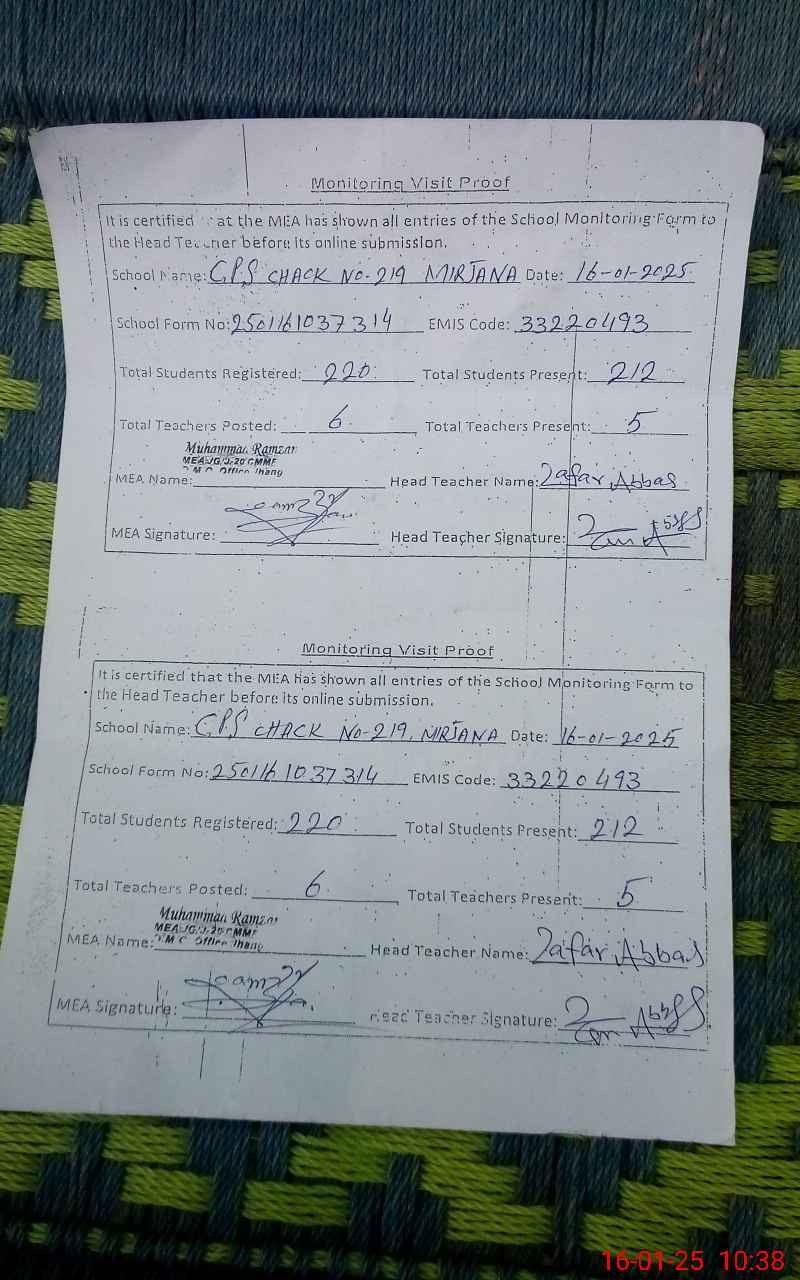 Monitoring Visit Proof
It is certified at the MEA has shown all entries of the School Monitoring Form to
the Head Teacher before its online submission.
School Name: GPS CHACK No-219 MIRJANA Date: 16-01-2025
School Form No: 2501161037314 EMIS Code: 33220493
Total Students Registered: 220 Total Students Present: 212
Total Teachers Posted: 6 Total Teachers Present: 5
Muhammad Ramzan
MEA
MEA Name: Head Teacher Name: Zafar Abbas
MEA Signature: Head Teacher Signature:
Monitoring Visit Proof
It is certified that the MEA has shown all entries of the School Monitoring Form to
the Head Teacher before its online submission.
School Name: GPS CHACK No-219, MIRJANA Date: 16-01-2025
School Form No: 2501161037314 EMIS Code: 33220493
Total Students Registered: 220 Total Students Present: 212
Total Teachers Posted: 6 Total Teachers Present: 5
Muhammad Ramzan
MEA
MEA Name: Office Jhang Head Teacher Name: Zafar Abbas
MEA Signature: Head Teacher Signature:
16-01-25 10:38